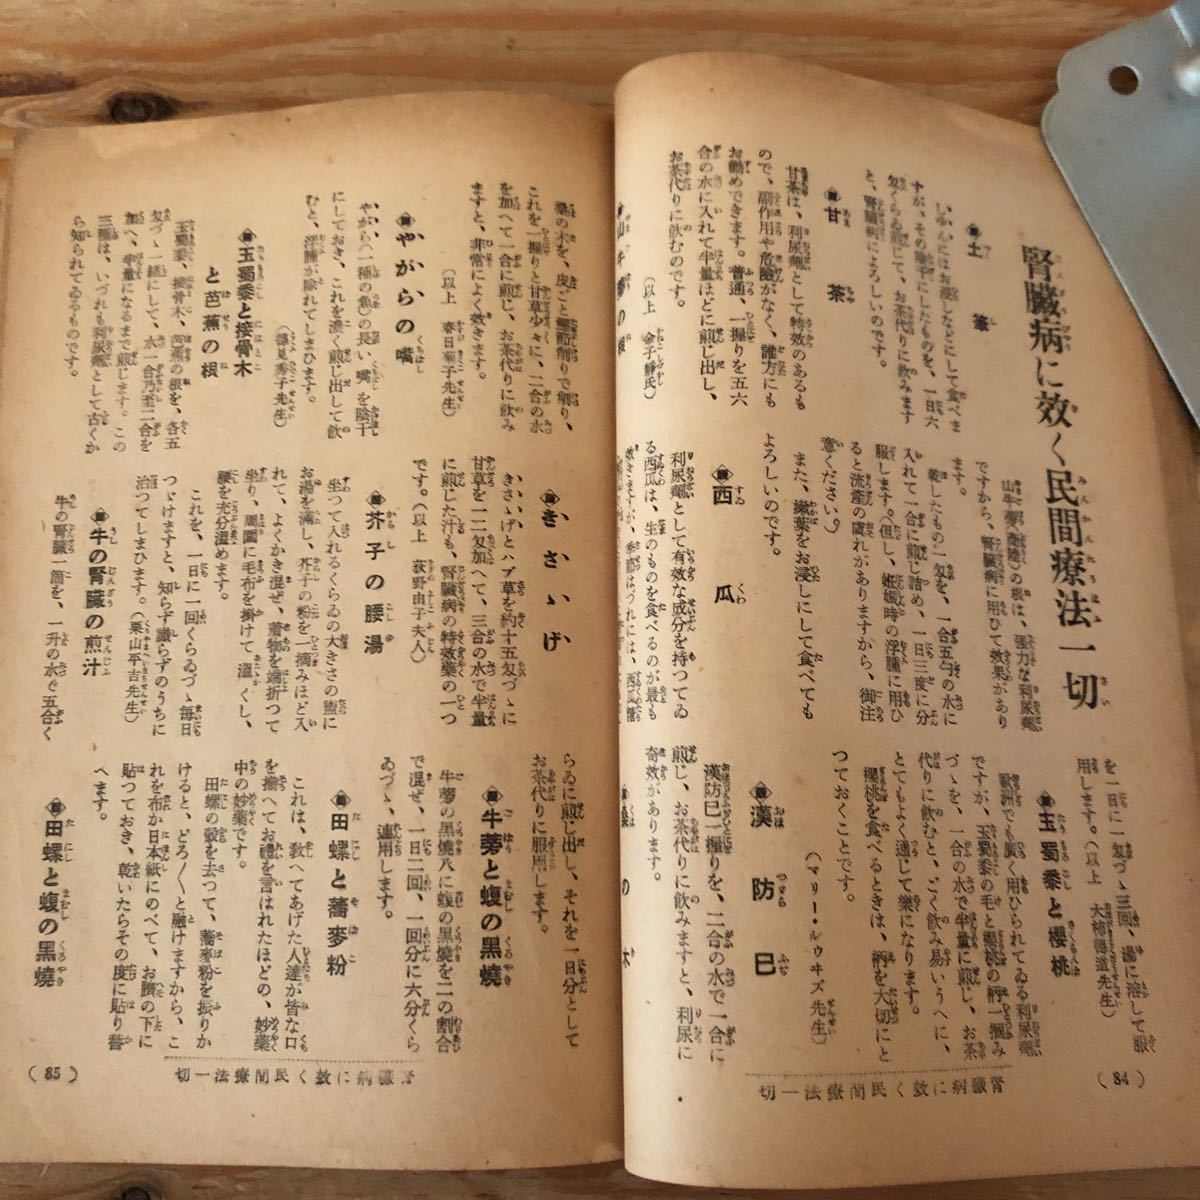 腎臓病に效く民間療法一切
土筆
いゝものにはお浸しなどにして食べま
すが、その陰干にしたものを、一日六
匁くらゐ煎じて、お茶代りに飲みます
と、腎臓病によろしいのです。
甘茶
甘茶は、利尿劑として特效のあるも
ので、副作用や危險がなく、誰方にも
お勸めできます。普通、一握りを五六
合の水に入れて半量ほどに煎じ出し、
お茶代りに飲むのです。
(以上 金子靜氏)
山牛蒡の根
山牛蒡(商陸)の根は、强力な利尿劑
ですから、腎臓病に用ひて效果があり
ます。
乾したもの一匁を、一合五勺の水に
入れて一合に煎じ詰め、一日三度に分
服します。(但し、姙娠時の浮腫に用ひ
ると流産の虞れがありますから、御注
意ください)
また、嫩葉をお浸しにして食べても
よろしいのです。
西瓜
利尿劑として有效な成分を持つてゐ
る西瓜は、生のものを食べるのが最も
效きますが、季節はづれには、西瓜糖
を一日に一匁づゝ三回、湯に溶して服
用します。(以上 大柿得道先生)
玉蜀黍と櫻桃
歐洲でも廣く用ひられてゐる利尿劑
ですが、玉蜀黍の毛と櫻桃の柄一摑み
づゝを、一合の水で半量に煎じ、お茶
代りに飲むと、ごく飲み易いうへに、
とてもよく通じて樂になります。
櫻桃を食べるときは、柄を大切にと
つておくことです。
(マリー・ルウヰズ先生)
漢防巳
漢防巳一握りを、二合の水で一合に
煎じ、お茶代りに飲みますと、利尿に
奇效があります。
桑の木
腎臓病に效く民間療法一切
(84)
桑の木を、皮ごと鰹節削りで削り、
これを一握りと甘草少々に、二合の水
を加へて一合に煎じ、お茶代りに飲み
ますと、非常によく效きます。
(以上 春日菊子先生)
やがらの嘴
やがら(一種の魚)の長い嘴を陰干
にしておき、これを濃く煎じ出して飲
むと、浮腫が除れてしまひます。
(鄕見秀子先生)
玉蜀黍と接骨木
と芭蕉の根
玉蜀黍、接骨木、芭蕉の根を、各五
匁づゝ一緒にして、水一合乃至二合を
加へ、半量になるまで煎じます。この
三種は、いづれも利尿劑として古くか
ら知られてゐるものです。
きさゝげ
きさゝげとハブ草を約十五匁づゝに
甘草を一二匁加へて、三合の水で半量
に煎じた汁も、腎臓病の特效藥の一つ
です。(以上 荻野由子夫人)
芥子の腰湯
坐つて入れるくらゐの大きさの盥に
お湯を滿し、芥子の粉を一摘みほど入
れて、よくかき混ぜ、着物を端折つて
坐り、周圍に毛布を掛けて溫くし、
腰を充分溫めます。
これを、一日に一回くらゐづゝ毎日
つゞけますと、知らず識らずのうちに
治つてしまひます。(栗山平吉先生)
牛の腎臓の煎汁
牛の腎臓一箇を、一升の水で五合く
らゐに煎じ出し、それを一日分として
お茶代りに服用します。
牛蒡と蝮の黑燒
牛蒡の黑燒八に蝮の黑燒を二の割合
で混ぜ、一日二回、一回分に六分くら
ゐづゝ、連用します。
田螺と蕎麥粉
これは、敎へてあげた人達が皆な口
を揃へてお禮を言はれたほどの、妙藥
中の妙藥です。
田螺の殼を去つて、蕎麥粉を振りか
けると、どろ〱と融けますから、こ
れを布か日本紙にのべて、お臍の下に
貼つておき、乾いたらその度に貼り替
へます。
田螺と蝮の黑燒
腎臓病に效く民間療法一切
(85)